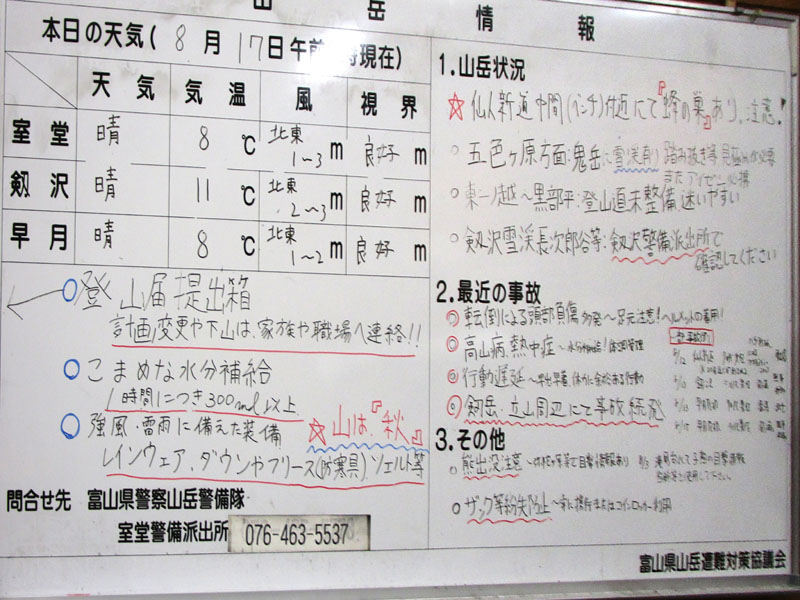 山岳情報
本日の天気(8月17日午前 時現在)
天気 気温 風 視界
室堂 晴 8℃ 北東1~3m 良好m
剱沢 晴 11℃ 北東2~3m 良好m
早月 晴 8℃ 北東1~2m 良好m
○登山届提出箱
計画変更や下山は、家族や職場へ連絡!!
○こまめな水分補給
1時間につき300ml以上
○強風・雷雨に備えた装備
☆山は『秋』
レインウェア、ダウンやフリース(防寒具)、ツェルト等
問合せ先 富山県警察山岳警備隊
室堂警備派出所 076-463-5537
1.山岳状況
☆仙人新道中間(ベンチ)付近にて『蜂の巣』あり、注意!
○五色ヶ原方面:鬼岳に雪渓有り 踏み抜き等
また アイゼン必携
○東一ノ越~黒部平:登山道未整備 迷いやすい
○剱沢雪渓長次郎谷等:剱沢警備派出所で
確認してください
2.最近の事故
◎転倒による頭部負傷多発~足元注意!ヘルメットの着用!
◎高山病、熱中症~水分補給!体調管理
◎行動遅延~早出早着、体力に余裕ある行動
◎剱岳・立山周辺にて事故続発
3.その他
○熊出没注意
○ザック等紛失防止~常に携行またはコインロッカー利用
富山県山岳遭難対策協議会